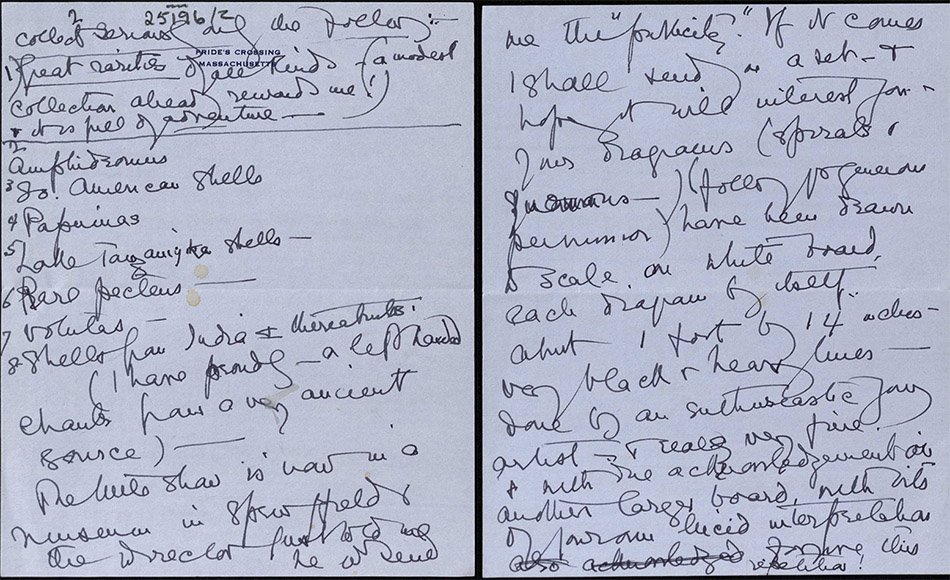 2
25196/2
collect serious all the follow:-
PRIDE'S CROSSING
MASSACHUSETTS
1) Great rarities of all kinds - (a modest
collection already rewards me!)
+ it is full of adventure —
2 Amphidromus
3 So. American Shells
4 Papuinas
5 Lake Tanganyika shells —
6 Rare pectens —
7 Volutas —
8 Shells from India & thereabouts.
(I have proudly — a left handed
chank from a very ancient
source) —
The little show is now in a
museum in Springfield &
the director just told me
he w'd send
me the "publicity". If it comes
I shall send as a set - &
hope it will interest you -
Two diagrams (spirals &
—) (follow yr generous
permission) have been drawn
to scale on white board,
each diagram by itself.
about 1 foot by 14 inches -
very black & heavy lines —
done by an enthusiastic young
artist — & really very fine.
& with due acknowledgement on
another larger board, with bits
of your own lucid interpretation
also acknowledged forgive this
repetition!